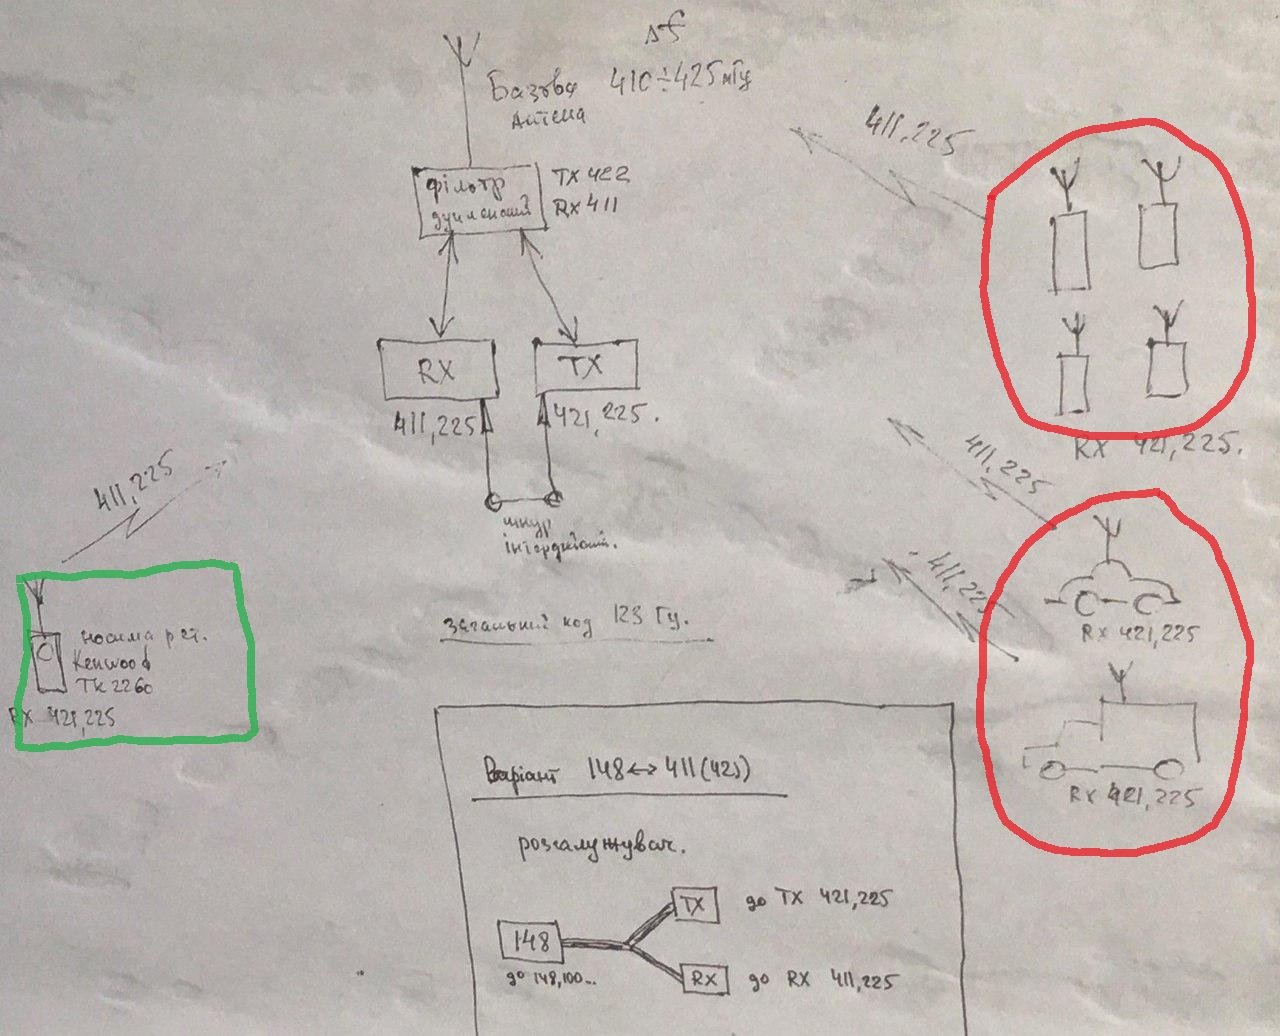 Δf
Базова 410÷425 мГц
Антена
411,225
фільтр
дуплексний
TX 422
RX 411
RX
TX
411,225
421,225.
RX 421,225.
411,225
411,225
шнур
інтерфейсний.
411,225
загальний код 123 Гц.
носима р.ст.
Kenwood
TK 2260
RX 421,225
RX 421,225
RX 421,225
Варіант 148↔411(421)
розгалужувач.
TX
до TX 421,225
148
до 148,100...
RX
до RX 411,225